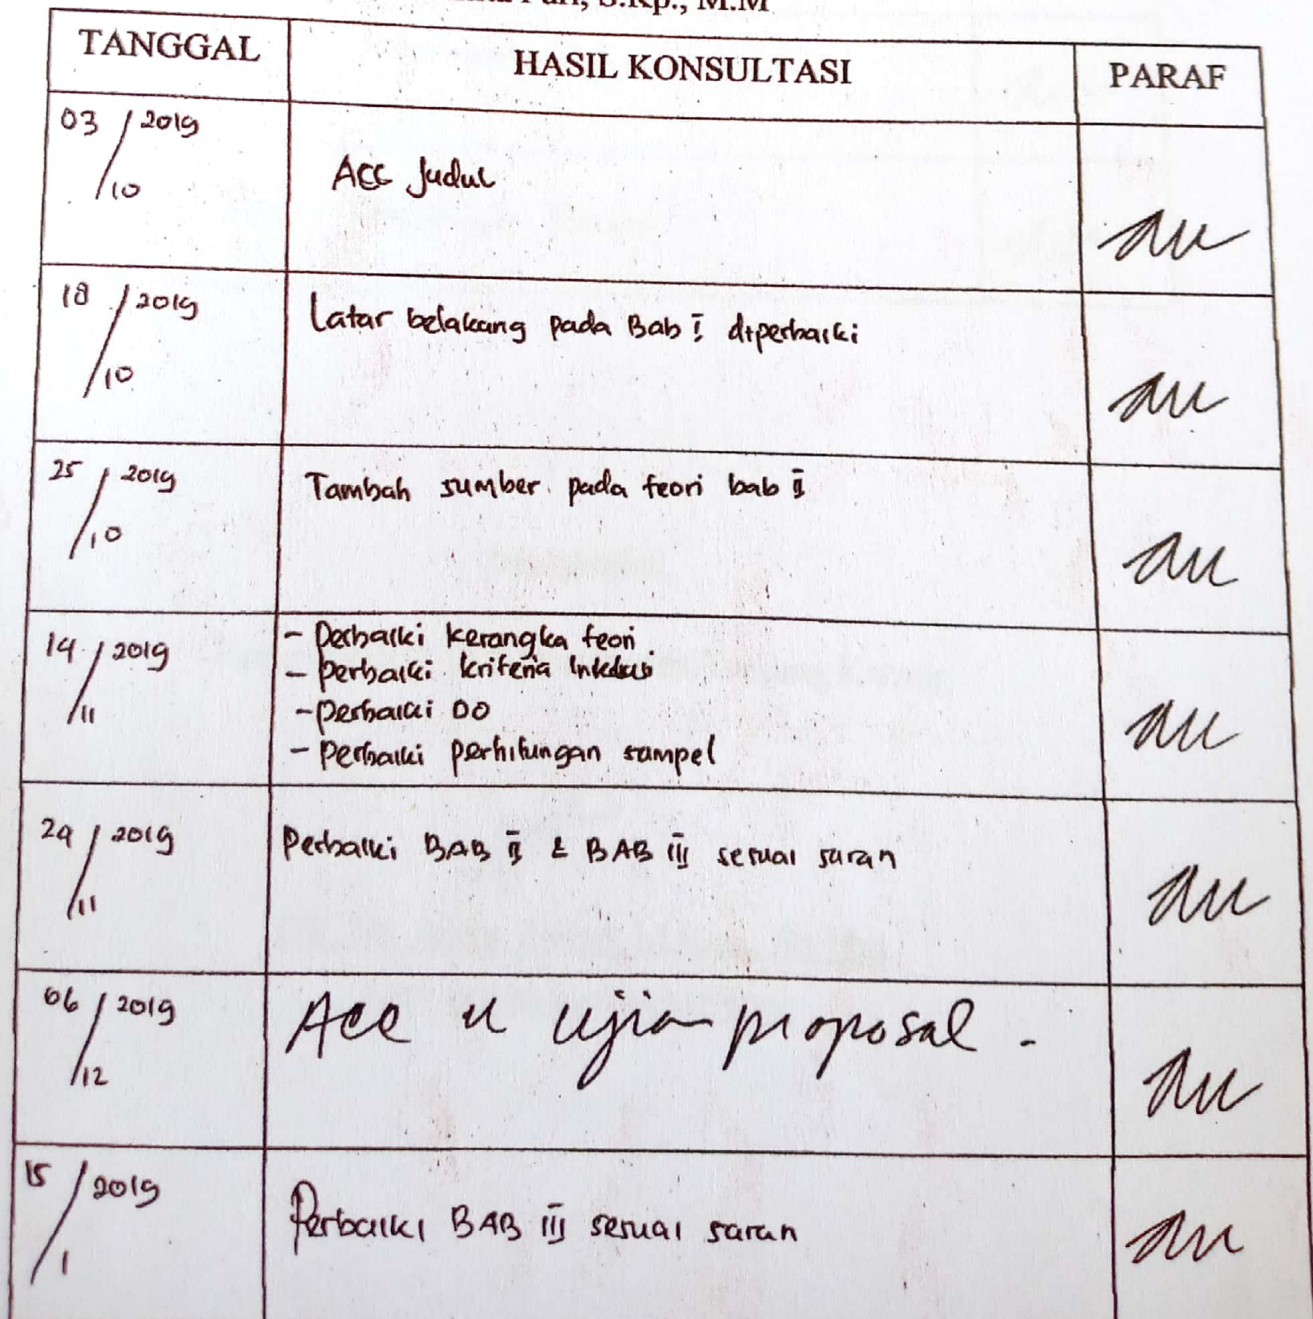 S.Kp., M.M
TANGGAL HASIL KONSULTASI PARAF
03/10 2019 ACC Judul
18/10 2019 Latar belakang pada Bab I diperbaiki
25/10 2019 Tambah sumber pada teori bab II
14/11 2019 - Perbaiki kerangka teori
- perbaiki kriteria Inklusi
- perbaiki DO
- Perbaiki perhitungan sampel
29/11 2019 Perbaiki BAB II & BAB III sesuai saran
06/12 2019 Acc u ujian proposal.
15/1 2019 Perbaiki BAB III sesuai saran